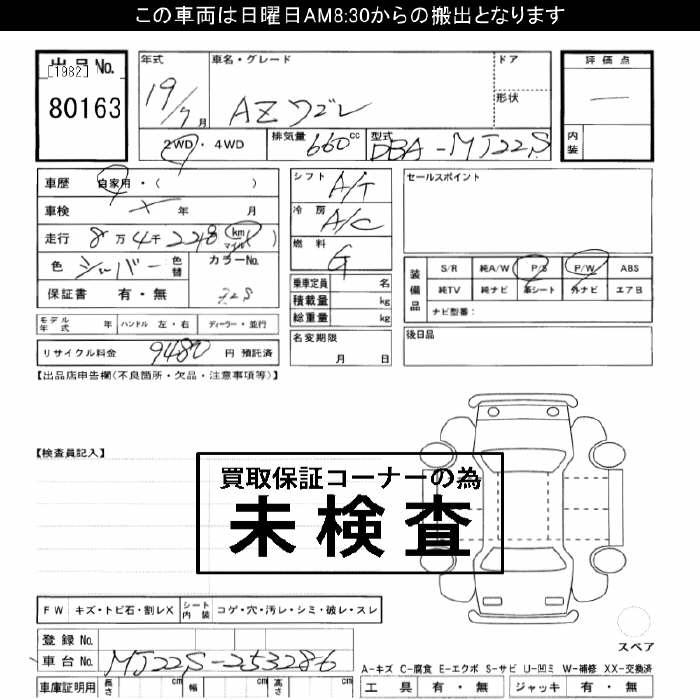 この車両は日曜日AM8:30からの搬出となります
出品No.
[1982]
80163
年式
19/7月
車名・グレード
AZワゴン
ドア
形状
評価点
—
内装
2WD・4WD
排気量 660cc
型式 DBA-MJ22S
車歴 自家用・( )
車検 年 月
走行 8万4千228 (km マイル)
色 シルバー 色替
カラーNo.
保証書 有・無
Z2S
シフト A/T
冷房 A/C
燃料 G
乗車定員 名
積載量 kg
総重量 kg
名変期限
月 日
セールスポイント
装備品
S/R 純A/W P/S P/W ABS
純TV 純ナビ 革シート 外ナビ エアB
ナビ型番:
後日品
モデル年式 年 ハンドル 左・右 ディーラー・並行
リサイクル料金 9480 円 預託済
【出品店申告欄(不良箇所・欠品・注意事項等)】
【検査員記入】
買取保証コーナーの為
未検査
FW キズ・トビ石・割レX シート内装 コゲ・穴・汚レ・シミ・破レ・スレ
登録No.
車台No. MJ22S-253286
車庫証明用 長さ cm 幅 cm 高さ cm
スペア
A-キズ C-腐食 E-エクボ S-サビ U-凹ミ W-補修 XX-交換済
工具 有・無 ジャッキ 有・無